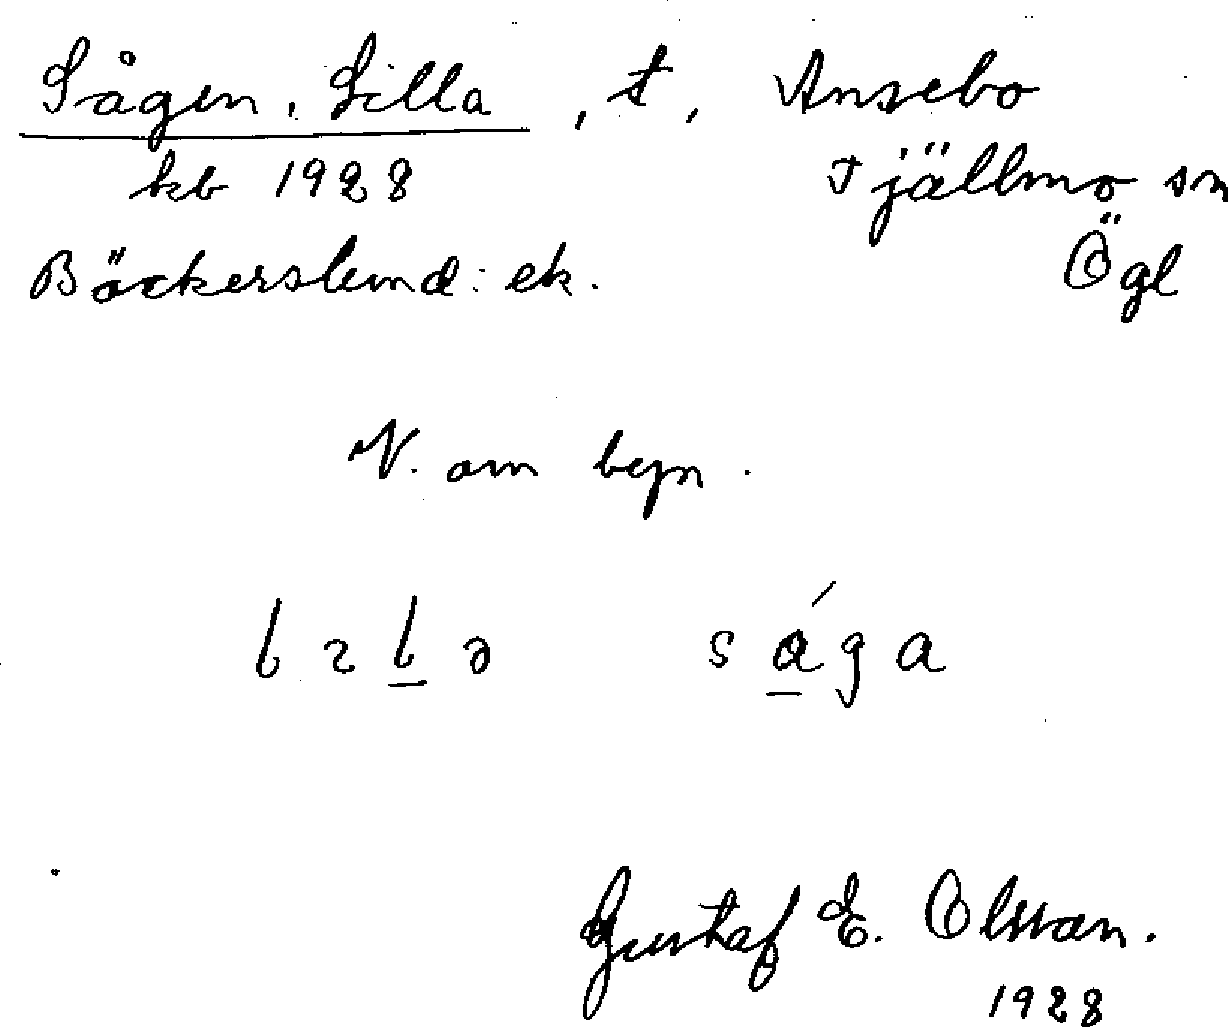 Sågen, Lilla, t, Ansebo
kb 1928 Tjällmo sn
Bäckerslund: ek. Ögl
N. om byn.
lɩlə sága
Gustaf E. Olsson.
1928